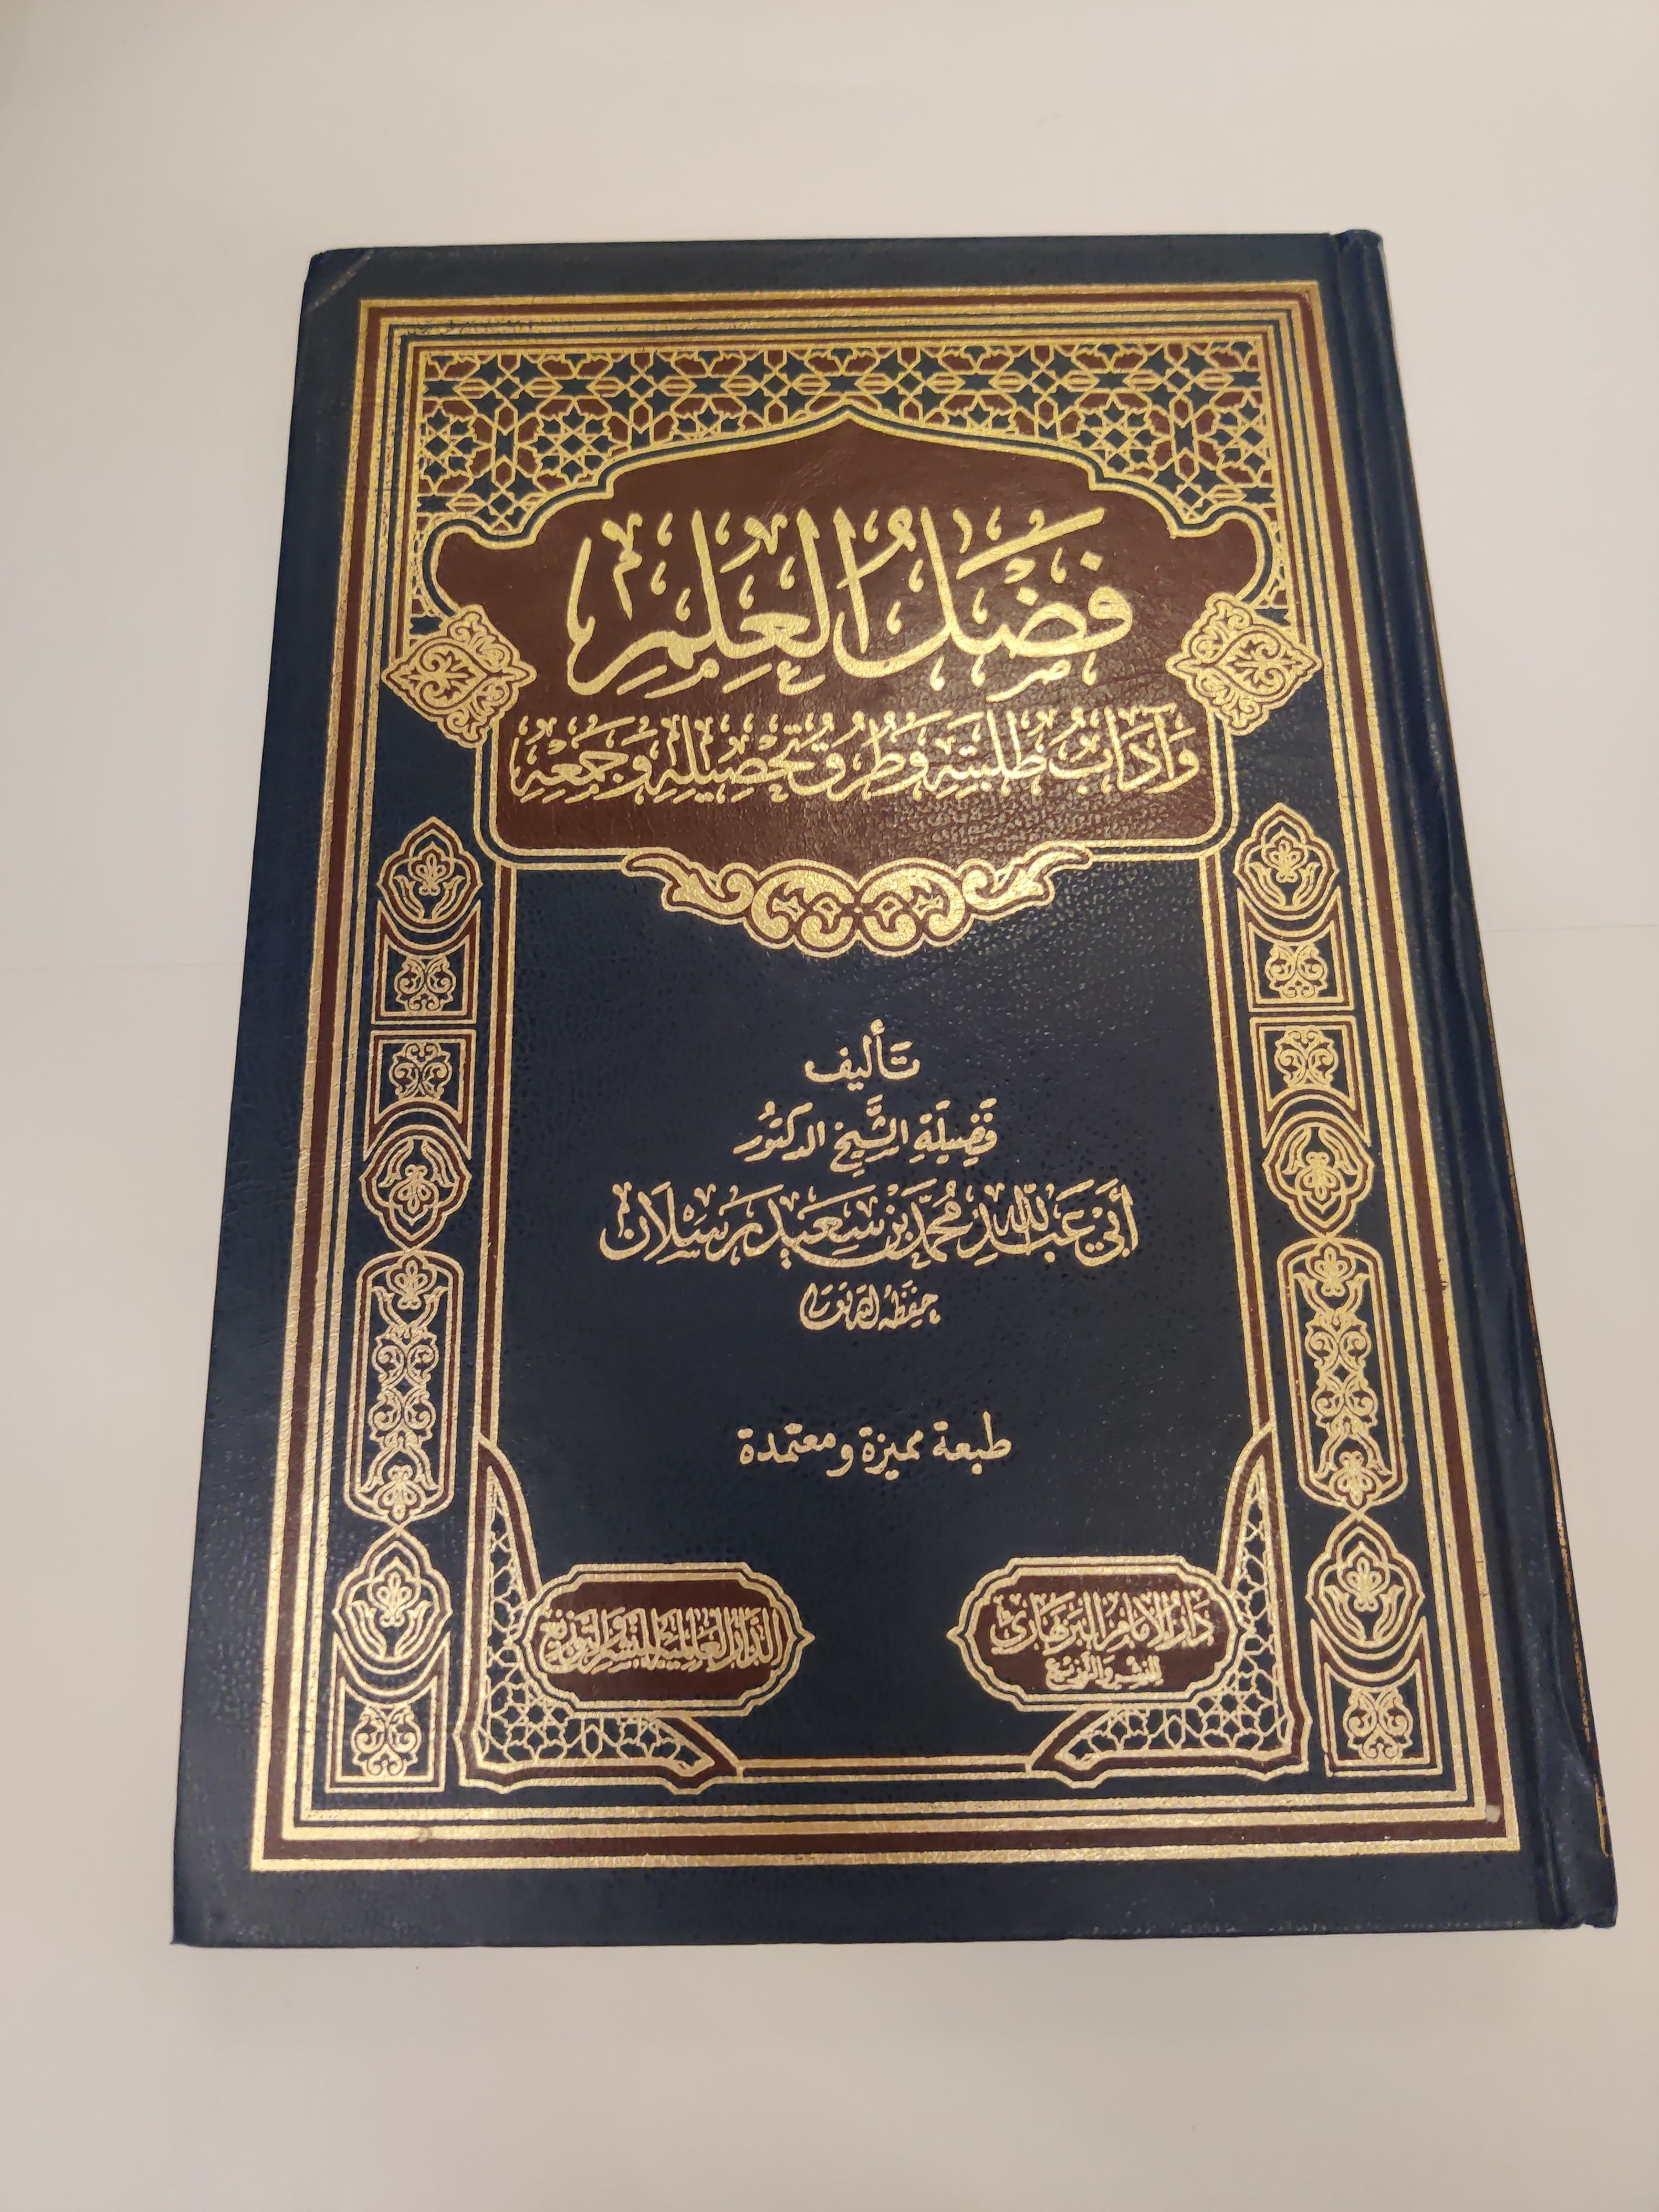 فَضْلُ الْعِلْمِ
وَآدَابُ طَلَبَتِهِ وَطُرُقُ تَحْصِيلِهِ وَجَمْعِهِ
تَأليف
فَضِيلَةِ الشَّيْخِ الدكتُورِ
أَبِي عَبْدِ اللَّهِ مُحَمَّدِ بْنِ سَعِيد رَسْلَان
حَفِظَهُ اللَّهُ تَعَالَى
طبعة مميزة ومعتمدة
دَارُ الإِمَامِ البَرْبَهَارِيِّ
لِلنَّشْرِ وَالتَّوْزِيعِ
الدَّارُ العَالَمِيَّة لِلنَّشْرِ وَالتَّوْزِيعِ